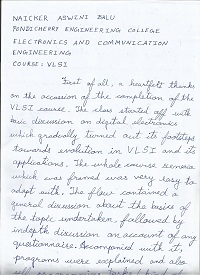 NAICKER ASWINI BALU
PONDICHERRI ENGINEERING COLLEGE
ELECTRONICS AND COMMUNICATION
ENGINEERING
COURSE: VLSI
First of all, a heartfelt thanks
on the occasion of the completion of the
VLSI course. The class started off with
basic discussion on digital electronics
which gradually turned out its footsteps
towards evolution in VLSI and its
applications. The whole course scenario
which was framed was very easy to
adapt with. The flow contained a
general discussion about the basics of
the topic undertaken, followed by
indepth discussion on account of any
questionnaire. Accompanied with it,
programs were explained and also